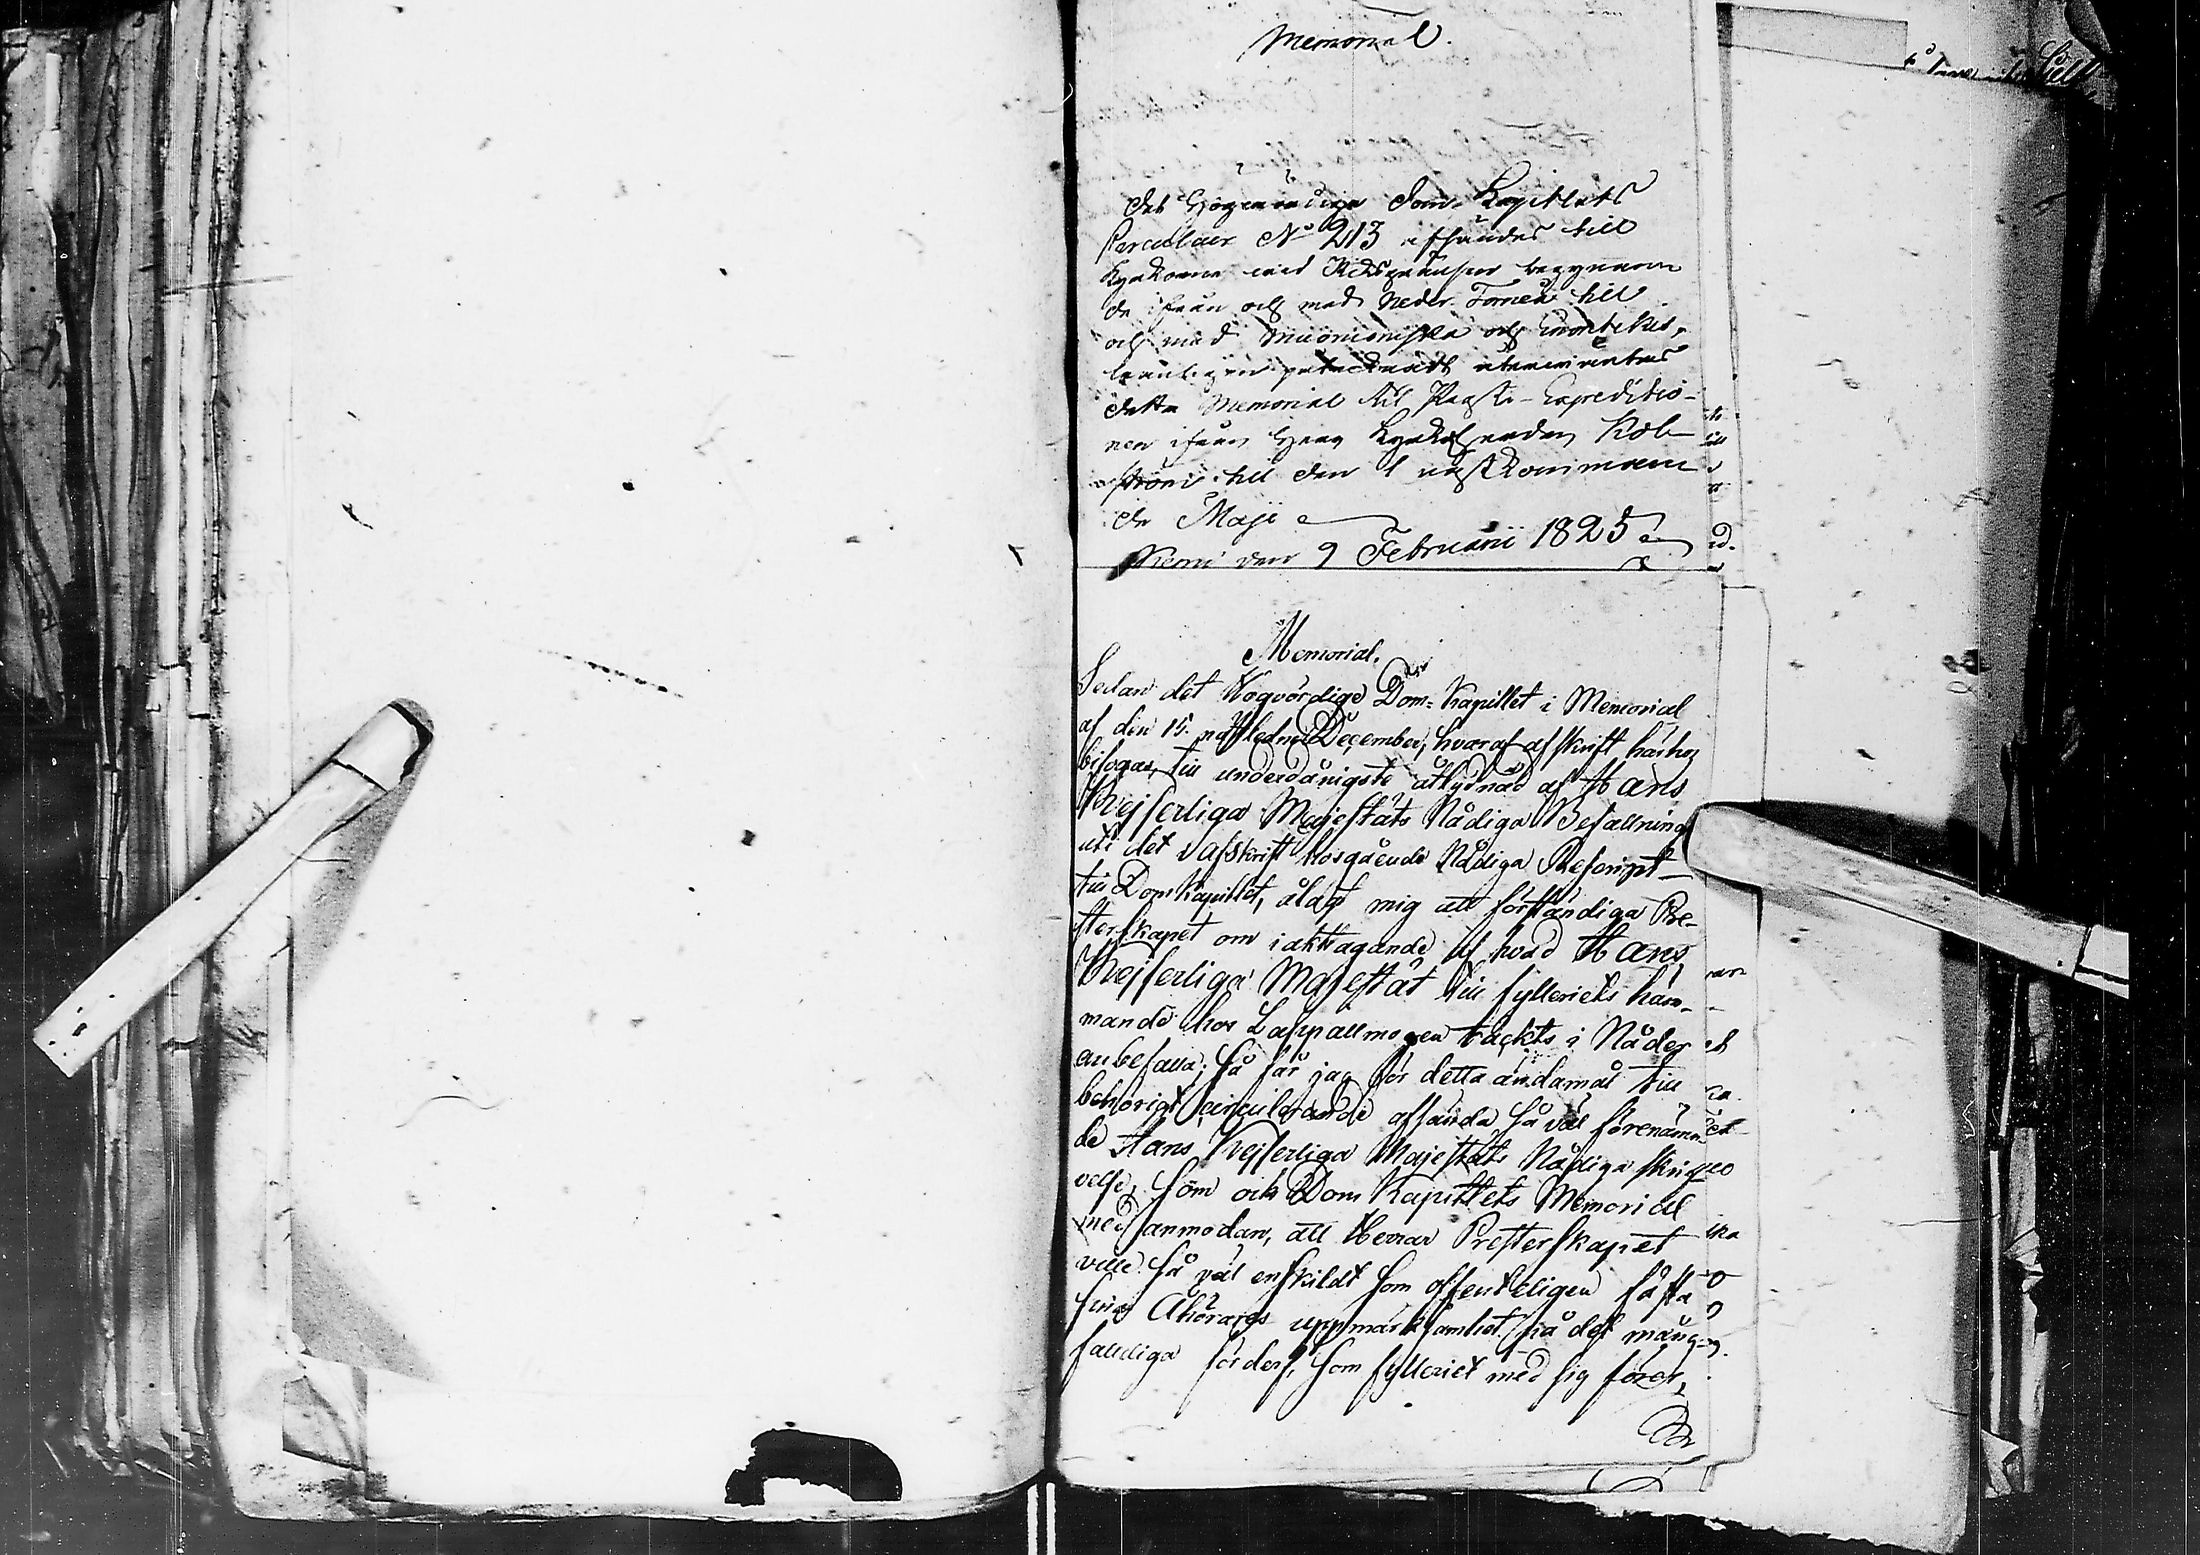 Memorial.
Det Högvördige Dom-Kapitlets
Circulair No 213 afsändes till
Kyrkorna vid Riksgränsen begynnan
de ifrån och med Neder Torneå till
och med Muonioniska och Enontekis,
hvarifrån återväntas
detta Memorial till Prosts-Expeditio-
nen ifrån Herr Kyrkoherden Kol-
ström till den 1 nästkomman
de Maji
Kemi den 9 Februarii 1825
Memorial.
Sedan det Högvördige Dom-Kapitlet i Memorial
af den 15. nästledne December, hvaraf afskrift härhos
bifogas, till underdånigste åtlydnad af Hans
Kejserliga Majestäts Nådiga Befallning
uti det i afskrift hosgående Nådiga Rescript
till DomKapitlet, ålagt mig att förständiga Pre-
sterskapet om iakttagande af hvad Hans
Kejserliga Majestät till fylleriets häm-
mande hos Lappallmogen täckts i Nåder
anbefalla; så får jag för detta ändamål till
behörigt circulerande afsända så väl förenämn-
de Hans Kejserliga Majestäts Nådiga skrif
velse, som ock Dom Kapitlets Memorial
med anmodan, att Herrar Presterskapet
ville så väl enskildt som offenteligen fästa
sine Åhörares uppmärksamhet på det mång-
falldiga förderf, som fylleriet med sig förer,